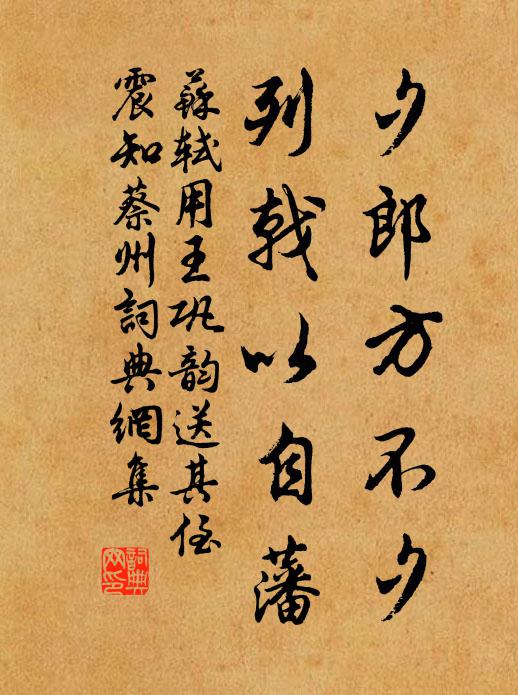 夕郎方不夕
列戟以自藩
蘇軾用王巩韵送其侄
震知蔡州詞典網集
詞典
网印